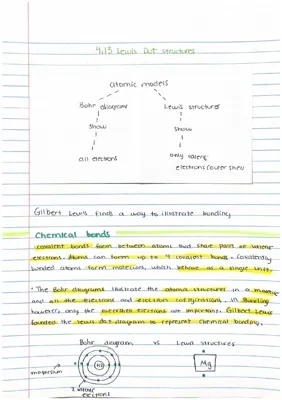 4.13 Lewis Dot structures
atomic models
Bohr diagrams
Lewis structures
show
show
all electrons
only valence
electrons (outer shell)
Gilbert Lewis finds a way to illustrate bonding
Chemical bonds
covalent bonds form between atoms that share pairs of valence
electrons. Atoms can form up to 4 covalent bonds. Covalently
bonded atoms form molecules, which behave as a single unit.
• The Bohr diagrams illustrate the atomic structures in a
and all the electrons and electron configurations. In Bonding
however, only the electrons are important. Gilbert Lewis
founded the lewis dot diagram to represent chemical bonding.
Bohr diagram vs Lewis structures
magnesium
Mg
2 valence
electrons